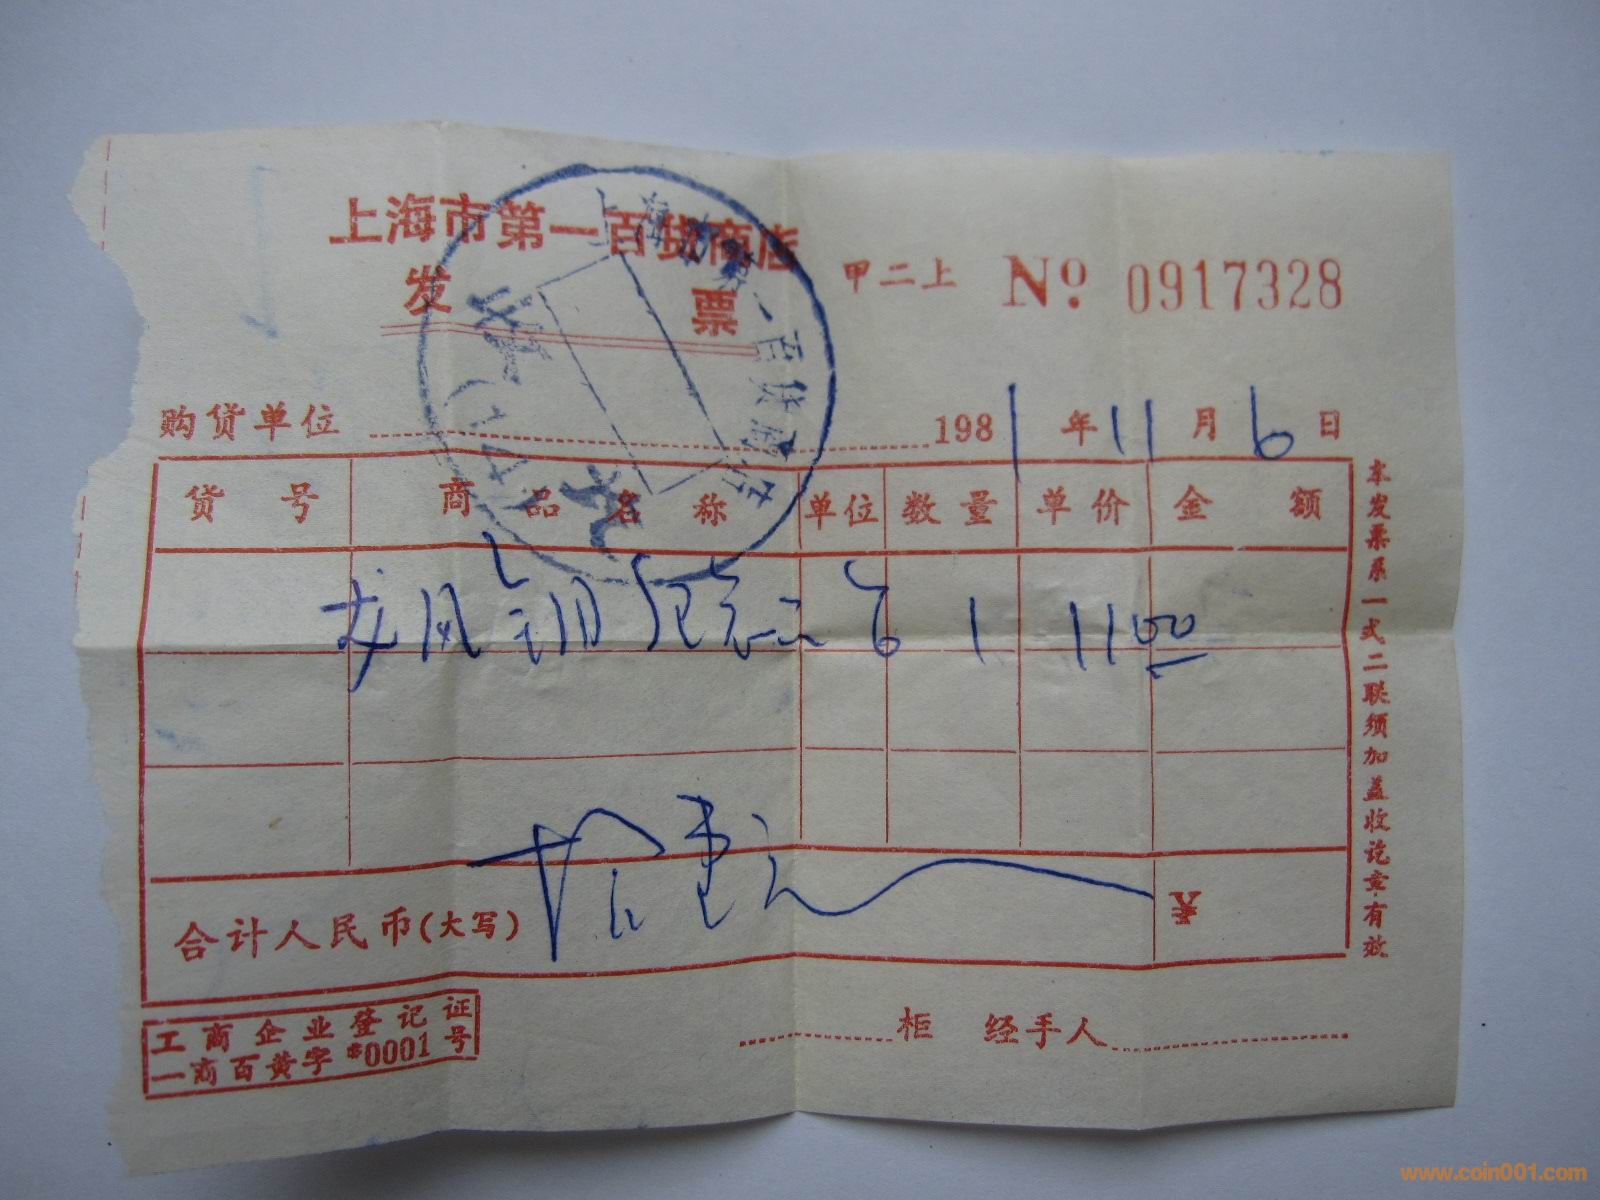 上海市第一百货商店
发 票
甲二上 No. 0917328
购货单位 1981年11月6日
货号 商品名称 单位 数量 单价 金额
龙凤 1 1100
合计人民币(大写) 拾壹元 ¥
工商企业登记证
一商百黄字#0001号
柜 经手人
本发票系一式二联须加盖收讫章有效
www.coin001.com